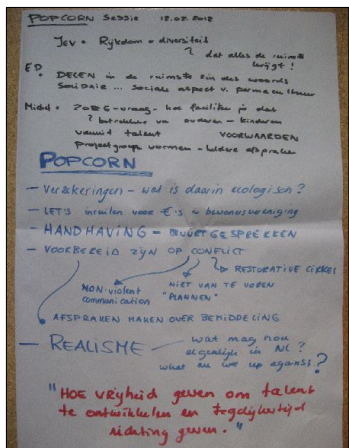 POPCORN Sessie 18.02.2012
Jev • Rijkdom = diversiteit
? dat alles de ruimte krijgt!
ED. DELEN in de ruimste zin des woords
Solidair ... sociale aspect v. permacultuur
ZORG-vraag - hoe faciliteer je dat
? betrekken van ouderen - kinderen
vanuit talent VOORWAARDEN
Projectgroep vormen - heldere afspraken
POPCORN
- Verzekeringen - wat is daarin ecologisch?
- LETS inruilen voor €'s bewonersvereniging
- HANDHAVING = BUURTGESPREKKEN
- VOORBEREID ZIJN OP CONFLICT
RESTORATIVE CIRKEL
NON-violent communication
NIET VAN TE VOREN "PLANNEN"
AFSPRAKEN MAKEN OVER BEMIDDELING
- REALISME
wat mag nou
eigenlijk in NL?
what are we up against?
"HOE vrijheid geven om talent
te ontwikkelen en tegelijkertijd
richting geven."